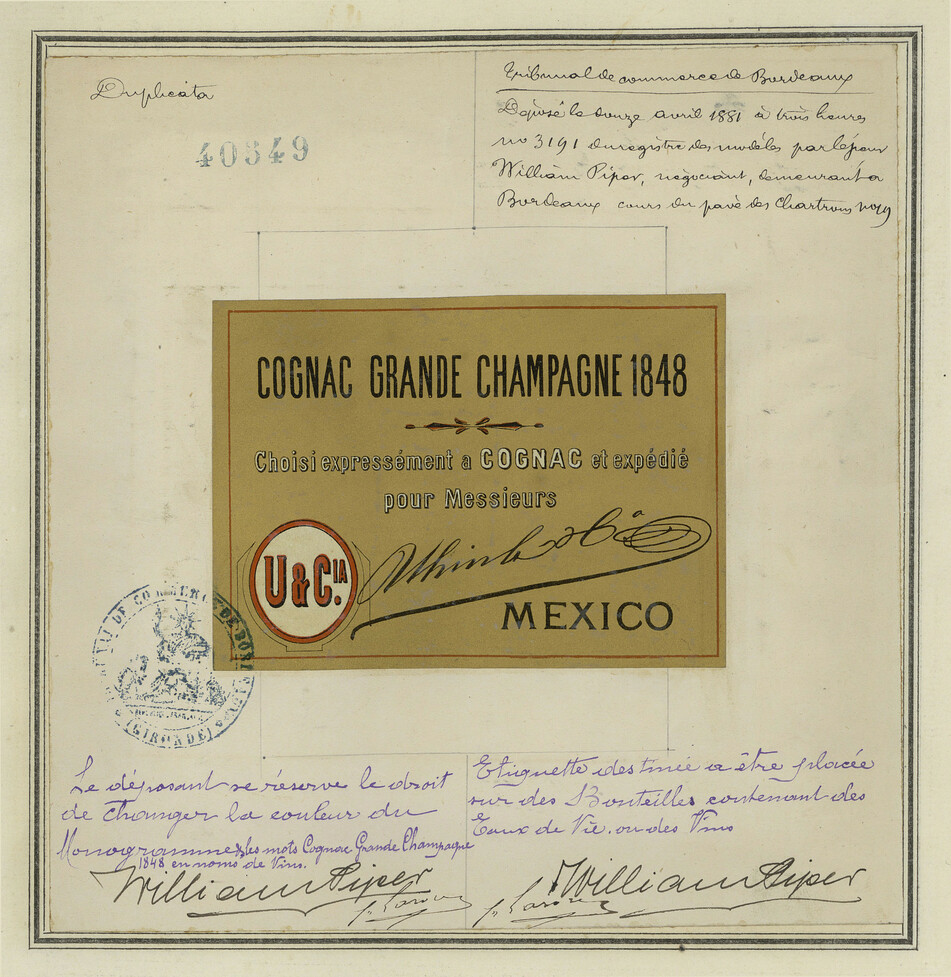 Duplicata
40349
Tribunal de commerce de Bordeaux
Déposé le douze avril 1881 à trois heures
no 3191 du registre des modèles par le sieur
William Piper, négociant, demeurant a
Bordeaux cours du pavé des Chartrons no 19
COGNAC GRANDE CHAMPAGNE 1848
Choisi expressément a COGNAC et expédié
pour Messieurs
U & CIA.
MEXICO
DE COMMERCE DE BORDEAUX
(GIRONDE)
Le déposant se réserve le droit
de changer la couleur du
Monogramme & les mots Cognac Grande Champagne
1848 en noms de Vins.
William Piper
Etiquette destinée a être placée
sur des Bouteilles contenant des
Eaux de Vie. ou des Vins
William Piper